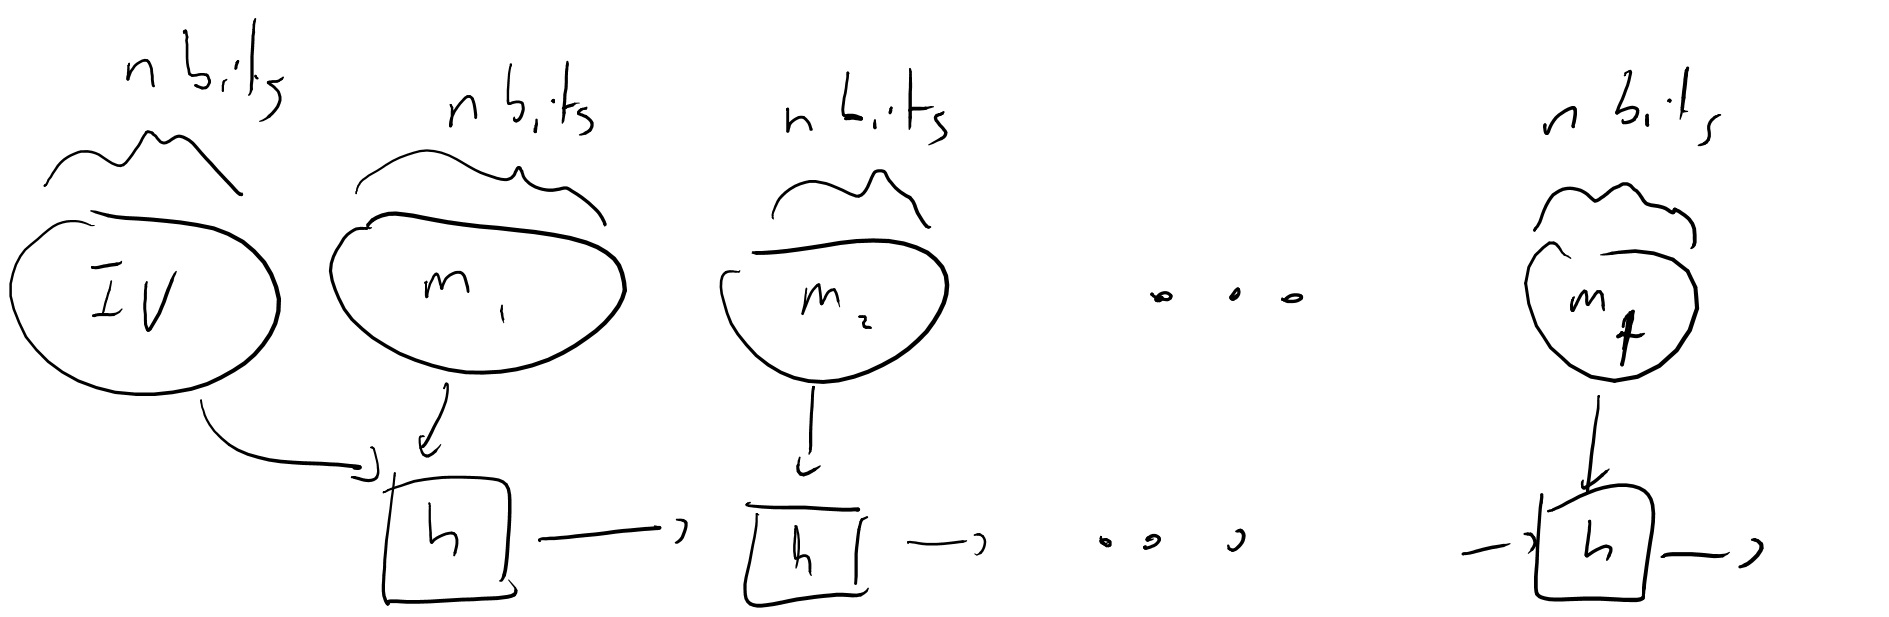 n bits n bits n bits n bits
IV m₁ m₂ m_t
h h h